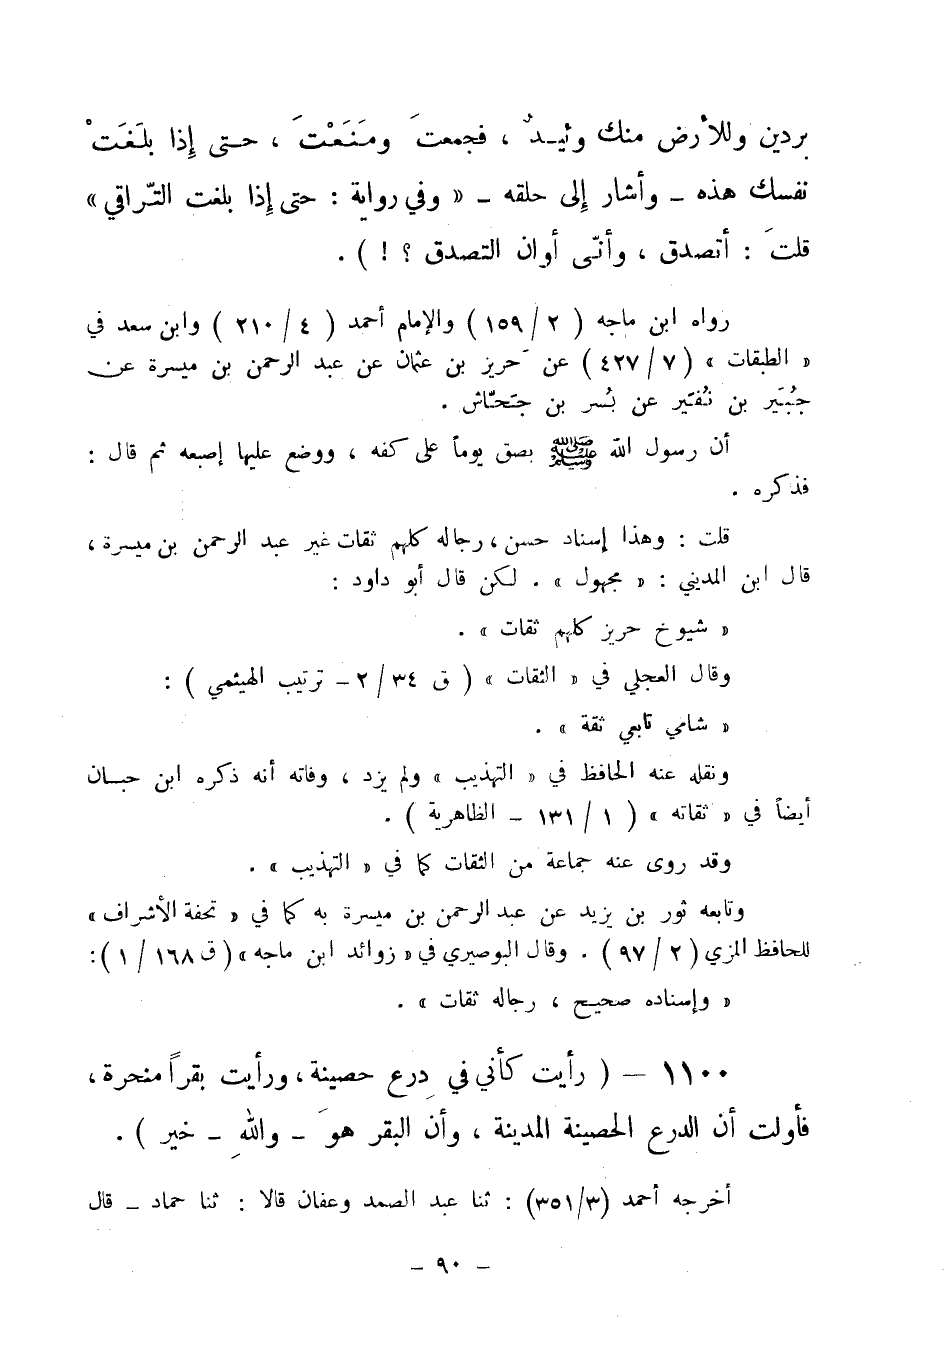 بردين وللأرض منك وئيـدٌ ، فجمعتَ ومنَعْتَ ، حـتى إِذا بلَغَتْ
نفسك هذه ـ وأشار إِلى حلقه ـ « وفي رواية : حتى إِذا بلغت التّراقي »
قلتَ : أتصدق ، وأنّى أوان التصدق ؟ ! ) .
رواه ابن ماجه ( ٢ / ١٥٩ ) والإمام أحمد ( ٤ / ٢١٠ ) وابن سعد في
« الطبقات » ( ٧ / ٤٢٧ ) عن حَريز بن عثمان عن عبد الرحمن بن ميسرة عن
جُبَير بن نُفَير عن بُسر بن جَحّاش .
أن رسول الله ﷺ بصق يوماً على كفه ، ووضع عليها إصبعه ثم قال :
فذكره .
قلت : وهذا إسناد حسن ، رجاله كلهم ثقات غير عبد الرحمن بن ميسرة ،
قال ابن المديني : « مجهول » . لكن قال أبو داود :
« شيوخ حريز كلهم ثقات » .
وقال العجلي في « الثقات » ( ق ٣٤ / ٢ ـ ترتيب الهيثمي ) :
« شامي تابعي ثقة » .
ونقله عنه الحافظ في « التهذيب » ولم يزد ، وفاته أنه ذكره ابن حبـان
أيضاً في « ثقاته » ( ١ / ١٣١ ـ الظاهرية ) .
وقد روى عنه جماعة من الثقات كما في « التهذيب » .
وتابعه ثور بن يزيد عن عبد الرحمن بن ميسرة به كما في « تحفة الأشراف »
للحافظ المزي ( ٢ / ٩٧ ) . وقال البوصيري في « زوائد ابن ماجه » ( ق ١٦٨ / ١ ) :
« وإسناده صحيح ، رجاله ثقات » .
١١٠٠ ـ ( رأيت كأني في دِرع حصينة ، ورأيت بقراً منحرة ،
فأولت أن الدرع الحصينة المدينة ، وأن البقر هوَ ـ واللهِ ـ خير ) .
أخرجه أحمد (٣/٣٥١) : ثنا عبد الصمد وعفان قالا : ثنا حماد ـ قال
ـ ٩٠ ـ